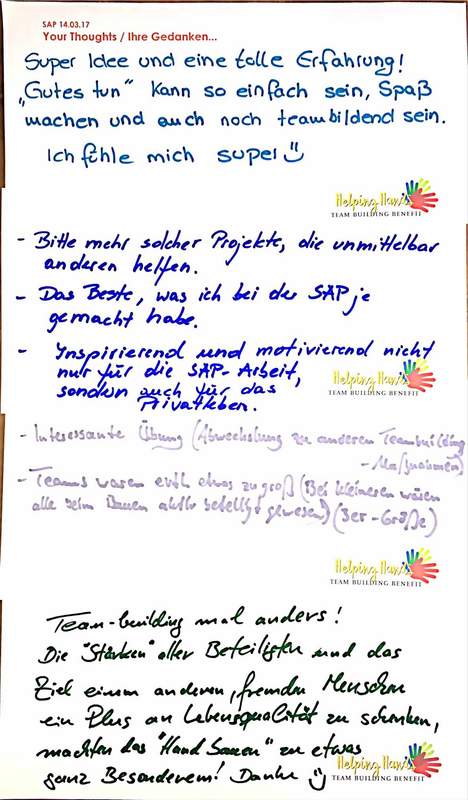 SAP 14.03.17
Your Thoughts / Ihre Gedanken...
Super Idee und eine tolle Erfahrung!
„Gutes tun" kann so einfach sein, Spaß
machen und auch noch teambildend sein.
Ich fühle mich super
Helping Hands
TEAM BUILDING BENEFIT
- Bitte mehr solcher Projekte, die unmittelbar
anderen helfen.
- Das Beste, was ich bei der SAP je
gemacht habe.
- Inspirierend und motivierend nicht
nur für die SAP-Arbeit,
sondern auch für das
Privatleben.
Helping Hands
TEAM BUILDING BENEFIT
- Interessante Übung (Abwechslung zu anderen Teambuilding
- Maßnahmen)
- Teams waren evtl. etwas zu groß (Bei kleineren wären
alle beim Bauen aktiv beteiligt gewesen) (3er-Größe)
Helping Hands
TEAM BUILDING BENEFIT
Team-building mal anders!
Die "Stärken" aller Beteiligten und das
Ziel einem anderen, fremden Menschen
ein Plus an Lebensqualität zu schenken,
machten das "Hand Bauen" zu etwas
ganz Besonderem! Danke
Helping Hands
TEAM BUILDING BENEFIT